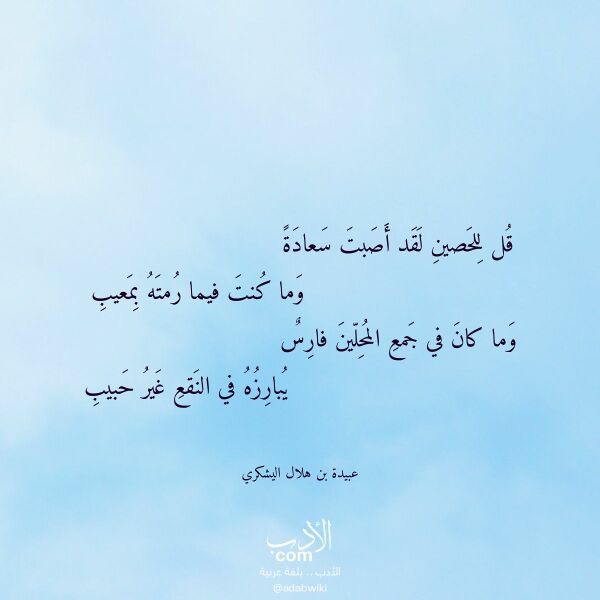 قُل لِلحَصينِ لَقَد أَصَبتَ سَعادَةً
وَما كُنتَ فيما رُمتَهُ بِمَعيبِ
وَما كانَ في جَمعِ المُحِلّينَ فارِسٌ
يُبارِزُهُ في النَقعِ غَيرُ حَبيبِ
عبيدة بن هلال اليشكري
الأدب
com
الأدب .. بلغة عربية
@adabwiki